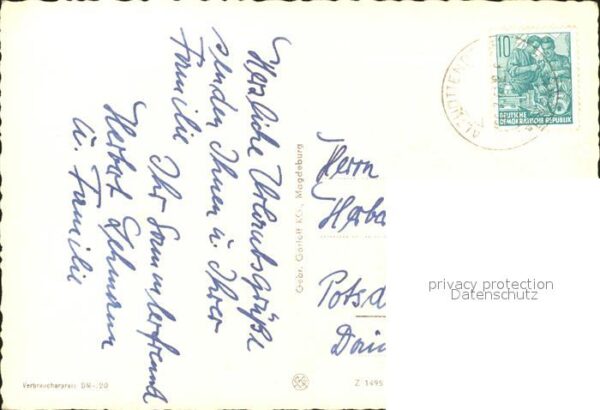 Herzliche Urlaubsgrüße
senden Ihnen u. Ihrer
Familie
Ihr Sammlerfreund
Herbert Lehmann
u. Familie
Gebr. Garloff KG., Magdeburg
Herrn
Herba
Potsda
10
DEUTSCHE
DEMOKRATISCHE REPUBLIK
privacy protection
Datenschutz
Verbraucherpreis DM -,20
Z 1495